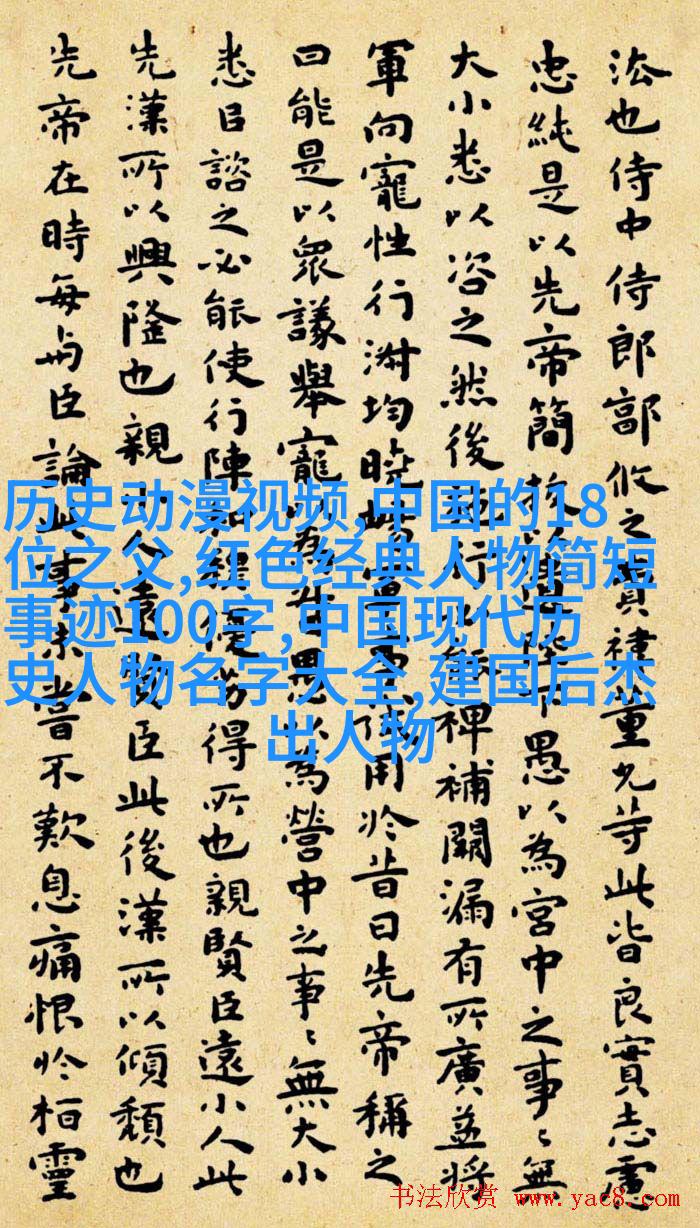 法也侍中侍郎郭攸之費禕董允等此皆良實志慮
忠純是以先帝簡拔以遺陛下愚以為宮中之事〻無
大小悉以咨之然後施行必能裨補闕漏有所廣益將
軍向寵性行淑均曉暢軍事試用於昔日先帝稱之
曰能是以眾議舉寵以為督愚以為營中之事〻無大小
悉以諮之必能使行陣和穆優劣得所也親賢臣遠小人此
先漢所以興隆也親小人遠賢臣此後漢所以傾頹也
先帝在時每與臣論此事未嘗不歎息痛恨於桓靈
历史动漫视频,中国的18
位之父,红色经典人物简短
事迹100字,中国现代历
史人物名字大全,建国后杰
出人物
书法欣赏 www.yac8.com